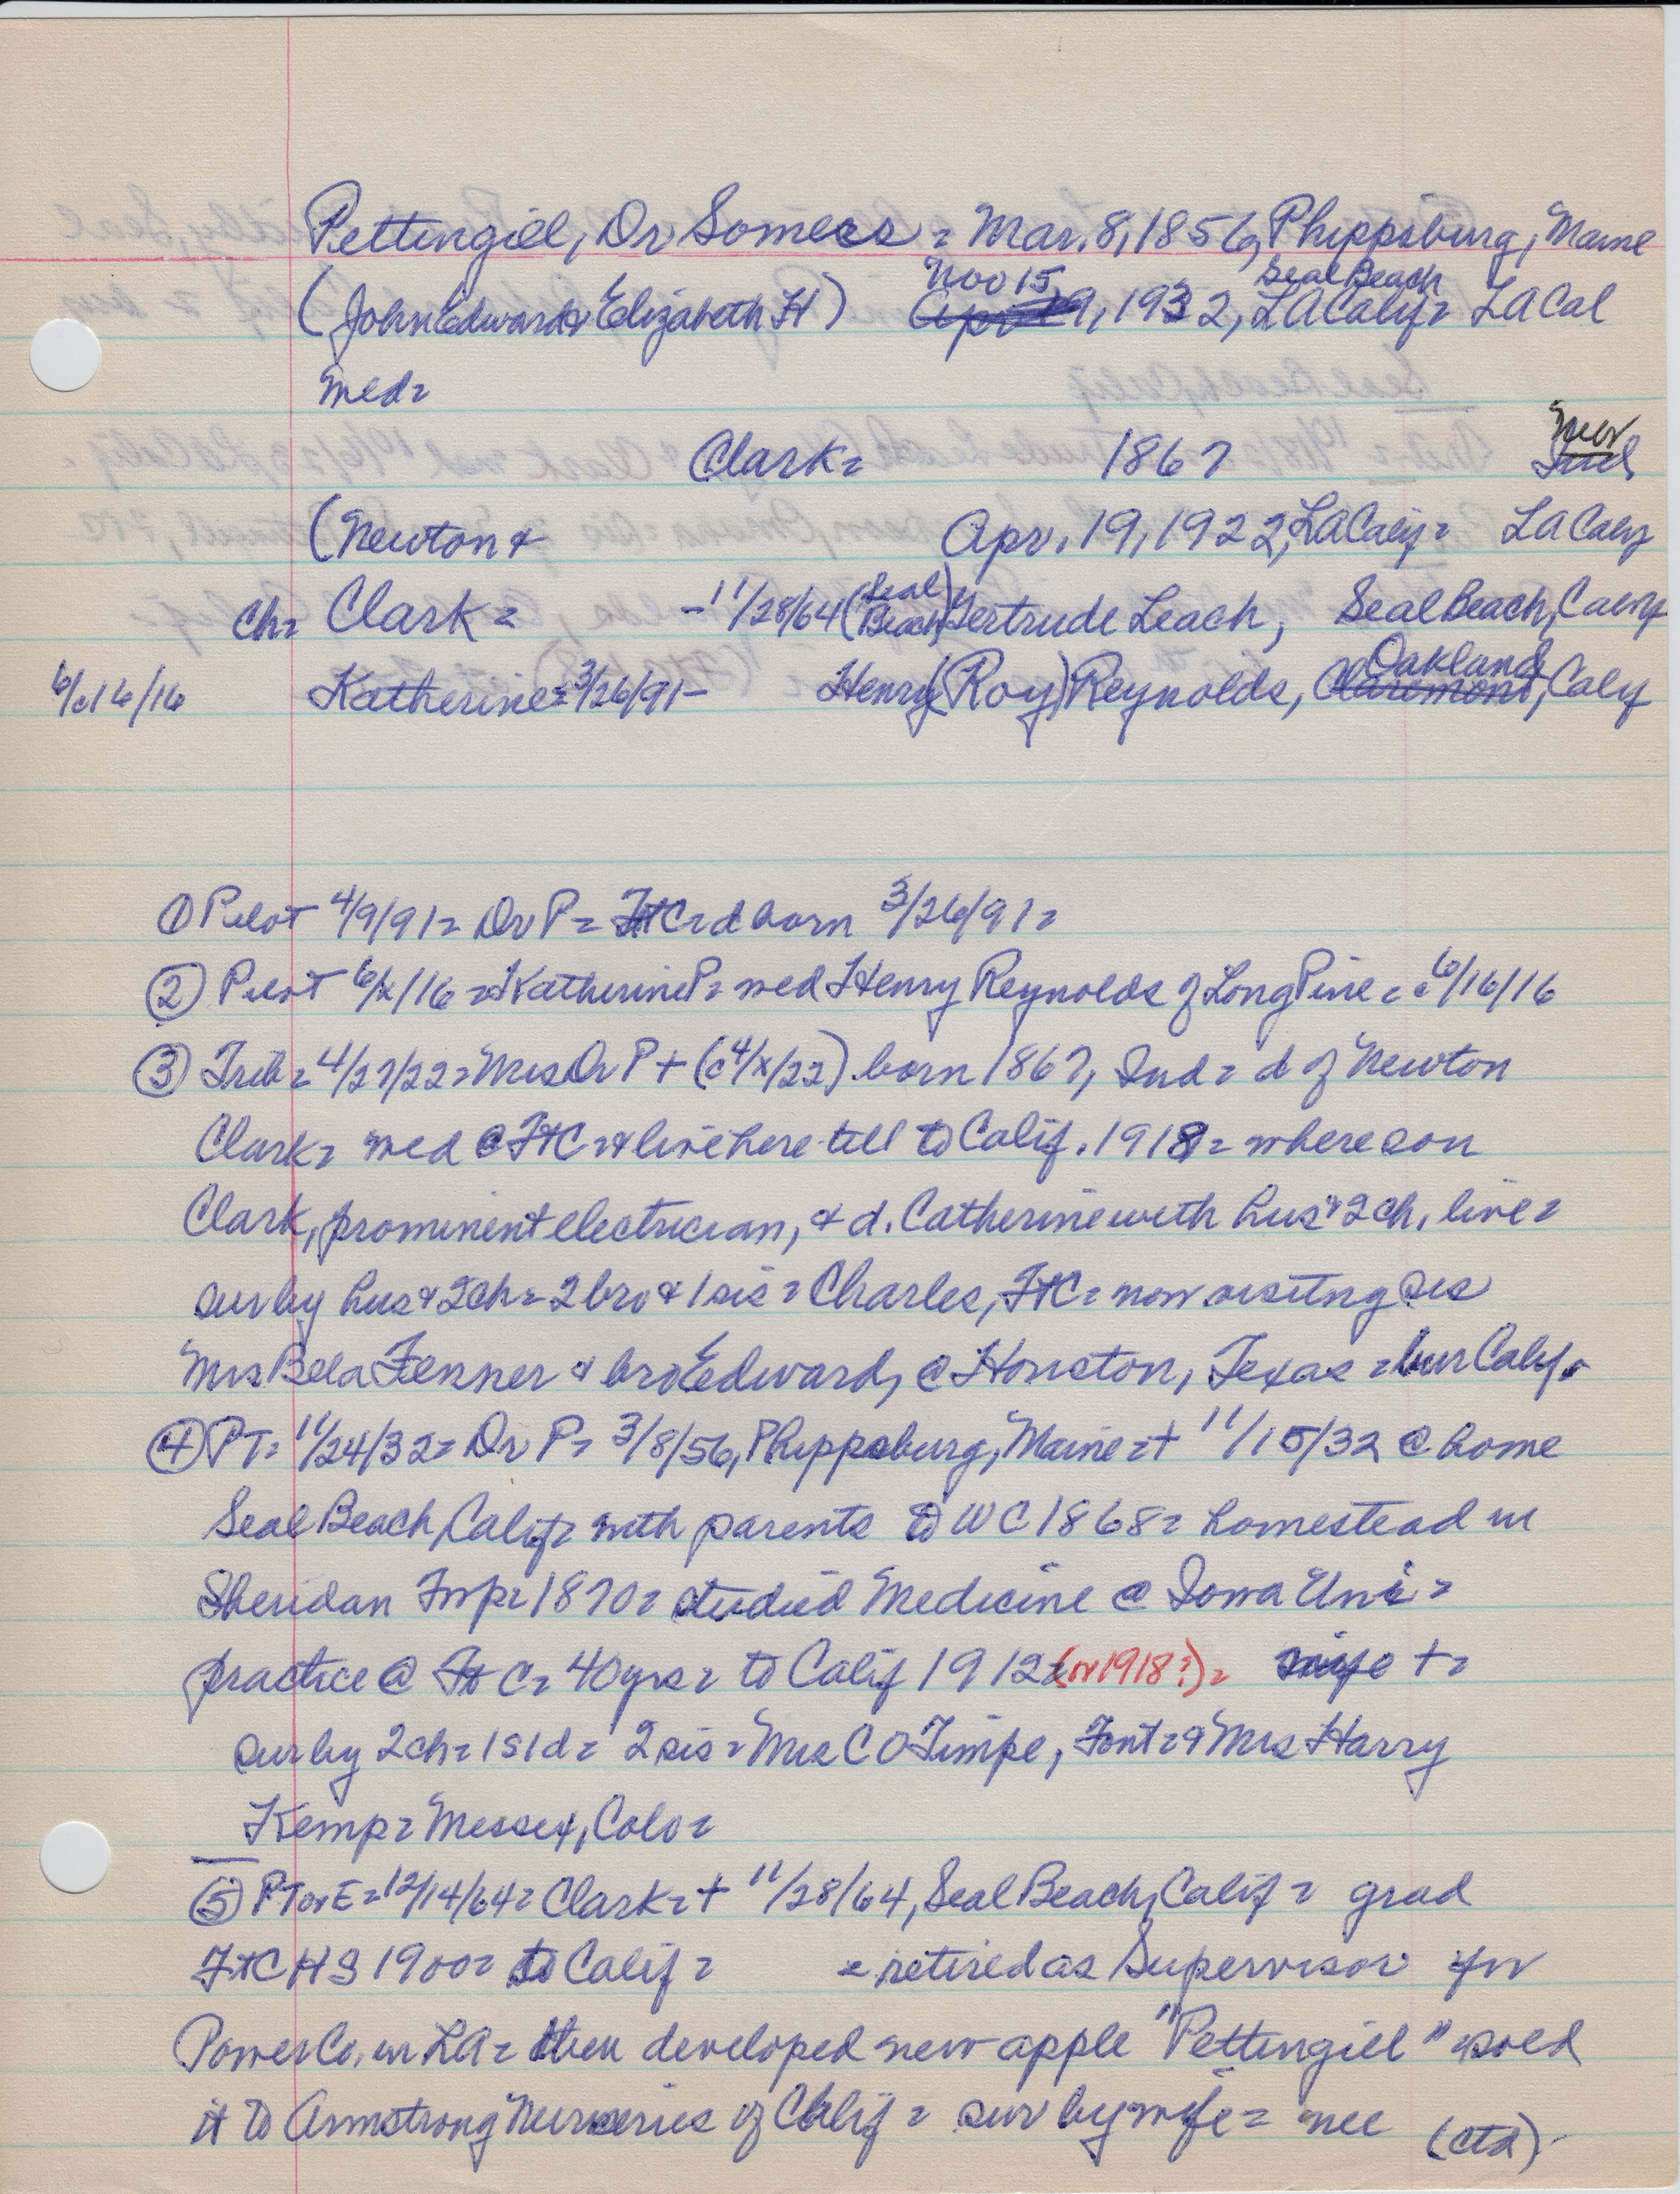 Pettingill, Dr Somers = Mar. 8, 1856, Phippsburg, Maine
Nov 15, Seal Beach
(John Edward & Elizabeth H) Apr 19, 1932, LA Calif = LA Cal
med=
Clark = 1867
(Newton & Apr. 19, 1922, LA Calif = LA Calif
ch= Clark = -11/28/64 (Seal Beach) Gertrude Leach, Seal Beach, Calif
Oakland
6/c16/16 Katherine = 3/26/91- Henry (Roy) Reynolds, Claremont, Calif
① Pilot 4/9/91 = Dr P = FtC = d born 3/26/91 =
② Pilot 6/x/16 = Katherine P = med Henry Reynolds of Long Pine = c 6/16/16
③ Trib = 4/27/22 = Mrs Dr P + (c 4/x/22) born 1867, Ind = d of Newton
Clark = med @ FtC = & live here till to Calif. 1918 = where son
Clark, prominent electrician, & d. Catherine with hus & 2 ch, live =
sur by hus & 2 ch = 2 bro & 1 sis = Charles, FtC = now visitng sis
Mrs Bela Fenner & bro Edward, @ Houston, Texas = bur Calif.
④ PT = 11/24/32 = Dr P = 3/8/56, Phippsburg, Maine = + 11/15/32 @ home
Seal Beach, Calif = with parents to WC 1868 = homestead in
Sheridan Twp = 1870 = studied Medicine @ Iowa Uni =
practice @ Ft C = 40 yrs = to Calif 1912 (or 1918?) = wife + =
sur by 2 ch = 1 s 1 d = 2 sis = Mrs C O Timpe, Font = & Mrs Harry
Kemp = Messex, Colo =
⑤ PT or E = 12/14/64 = Clark = + 11/28/64, Seal Beach, Calif = grad
FtC HS 1900 = to Calif = = retired as Supervisor for
Power Co. in LA = then developed new apple "Pettingill" sold
it to Armstrong Nurseries of Calif = sur by wife = nee (ctd).